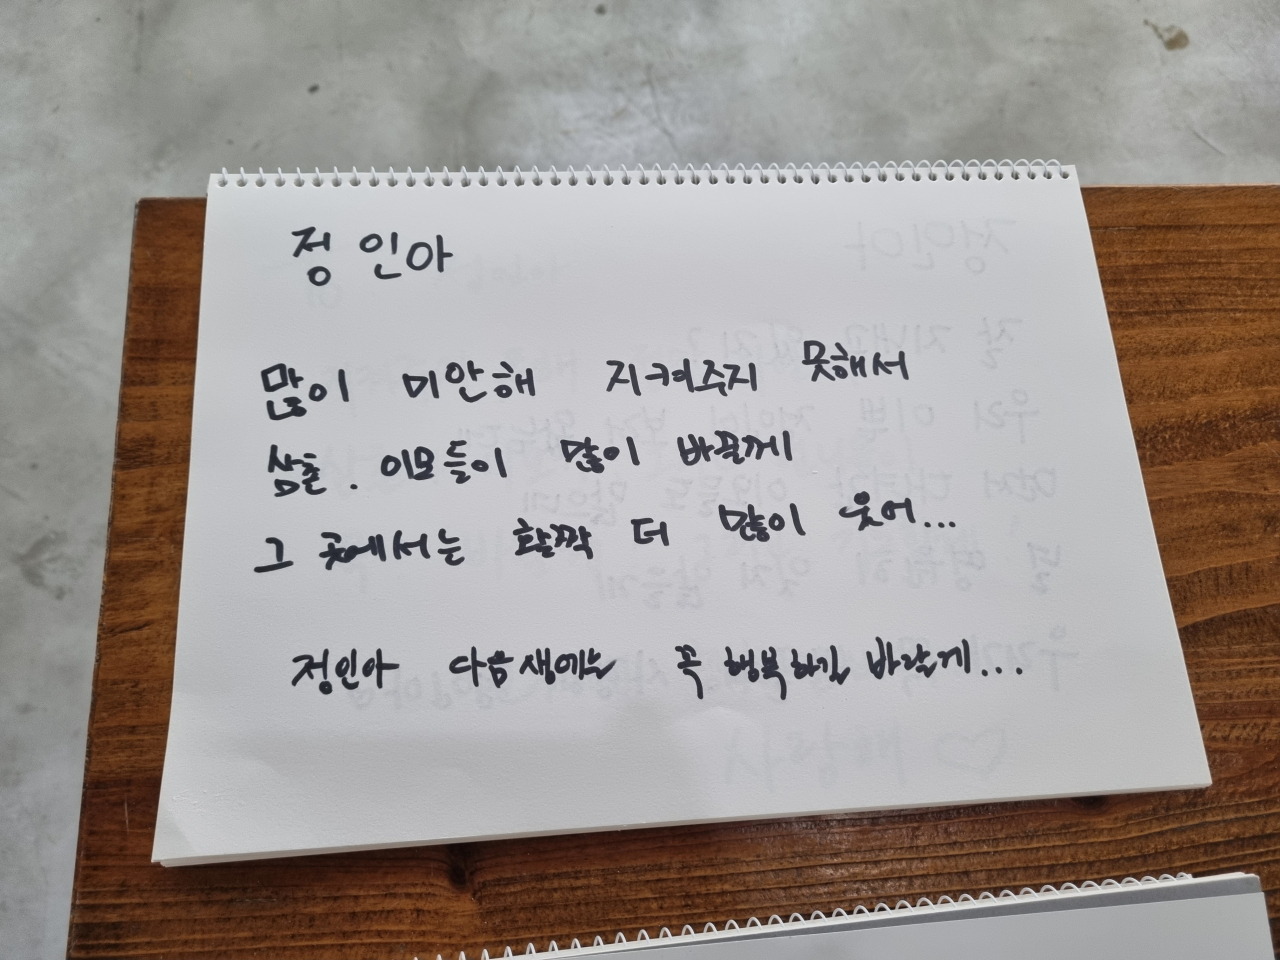 정인아
많이 미안해 지켜주지 못해서
삼촌. 이모들이 많이 바꿀께
그 곳에서는 활짝 더 많이 웃어...
정인아 다음생에는 꼭 행복하길 바랄게...